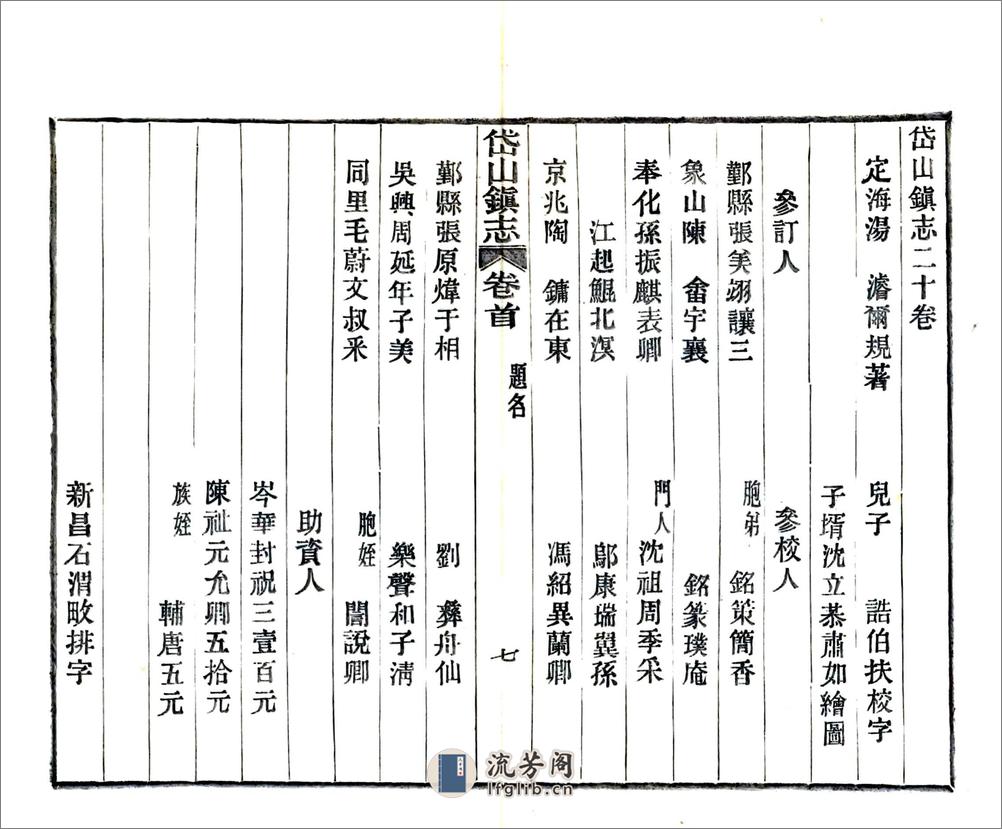 岱山鎮志二十卷
定海湯 濬爾規著 兒子 誥伯扶校字
子壻沈立恭肅如繪圖
參訂人 參校人
鄞縣張美翊讓三 胞弟 銘策簡香
象山陳 畬宇襄 銘篆璞庵
奉化孫振麒表卿 門人沈祖周季采
江起鯤北溟 鄔康瑞翼孫
京兆陶 鏞在東 馮紹異蘭卿
岱山鎮志 卷首 題名 七
鄞縣張原煒于相 劉 彝舟仙
吳興周延年子美 樂聲和子淸
同里毛蔚文叔釆 胞姪 誾說卿
助資人
岑華封祝三壹百元
陳祉元允卿五拾元
族姪 輔唐五元
新昌石渭畋排字
流芳阁
lfglib.cn